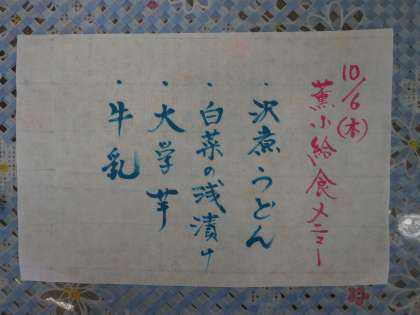 10/6(木)
薫小給食メニュー
・沢煮うどん
・白菜の浅漬け
・大学芋
・牛乳